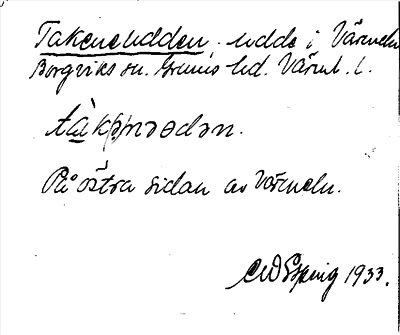 Takeneudden, udde i Värmeln
Borgviks sn. Grums hd. Värml. l.
På östra sidan av Värmeln.
1933.